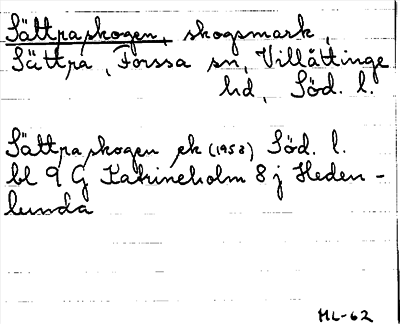 Sättraskogen, skogsmark,
Sättra, Forssa sn, Villåttinge
hd, Söd. l.
Sättraskogen ek (1958) Söd. l.
bl 9 G Katrineholm 8 j Heden-
lunda
HL-62